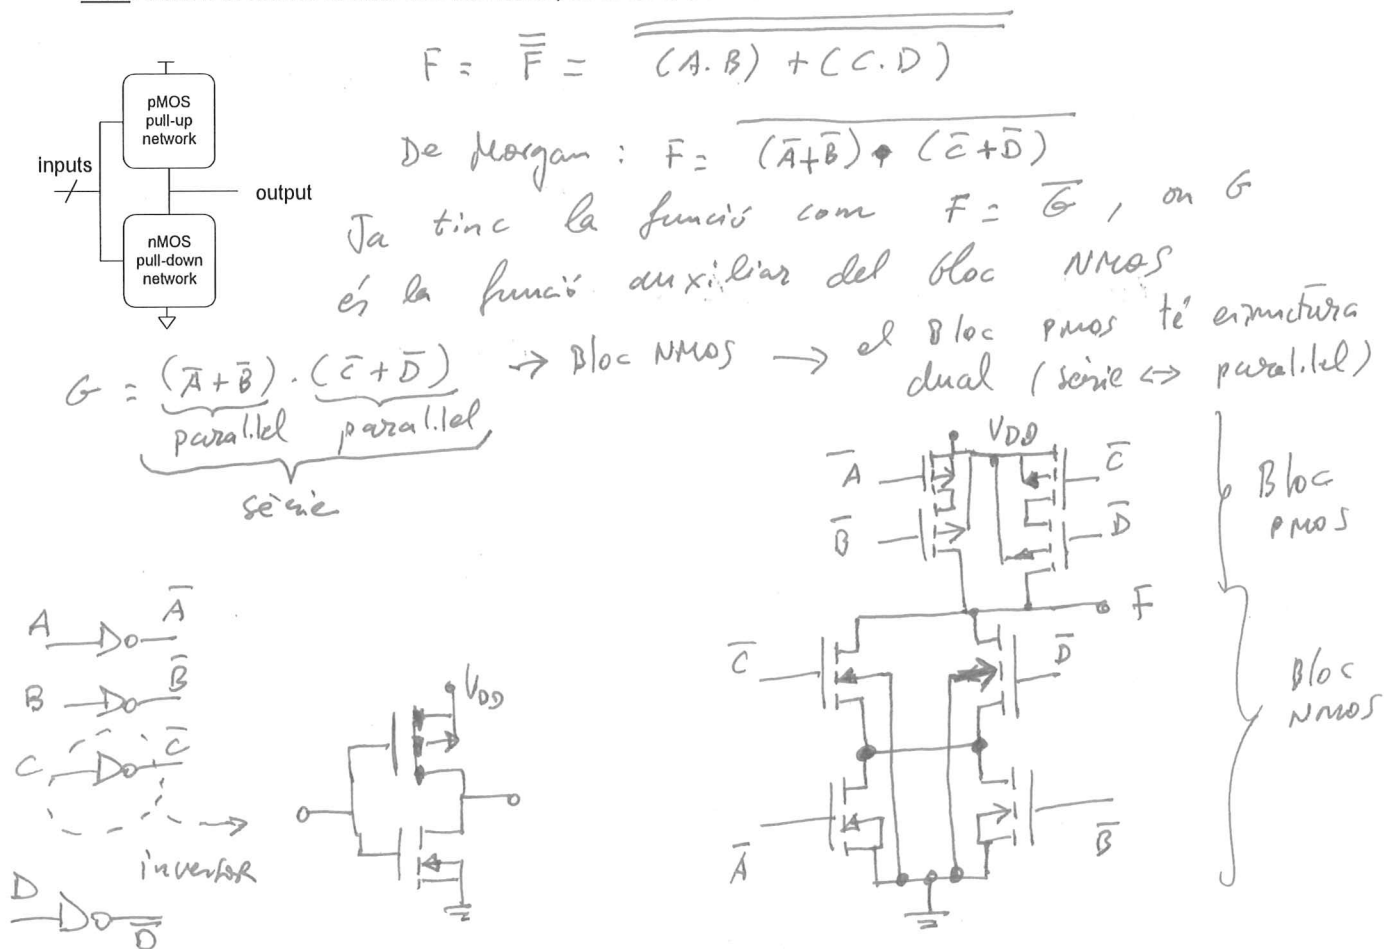 F = F̿ = (A.B) + (C.D)
pMOS
pull-up
network
inputs
output
nMOS
pull-down
network
De Morgan : F = (A̅+B̅) • (C̅+D̅)
Ja tinc la funció com F = G̅, on G
és la funció auxiliar del bloc NMOS
G = (A̅+B̅) . (C̅+D̅) → Bloc NMOS → el Bloc PMOS té estructura
dual (sèrie ↔ paral.lel)
paral.lel paral.lel
sèrie
VDD
A̅
C̅
B̅
D̅
Bloc
PMOS
F
C̅
D̅
Bloc
NMOS
A̅
B̅
A A̅
B B̅
C C̅
inversor
D D̅
VDD